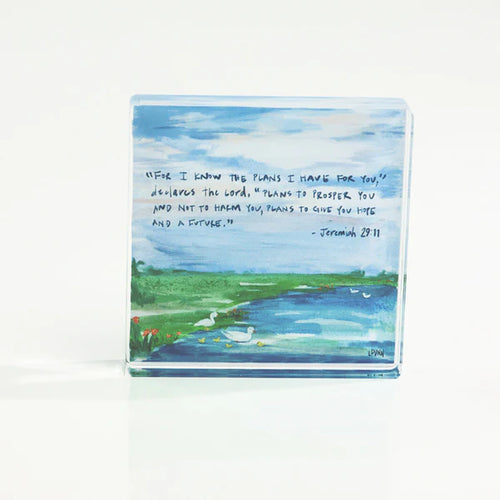 "FOR I KNOW THE PLANS I HAVE FOR YOU,"
declares the Lord. "PLANS TO PROSPER YOU
AND NOT TO HARM YOU, PLANS TO GIVE YOU HOPE
AND A FUTURE."
- Jeremiah 29:11